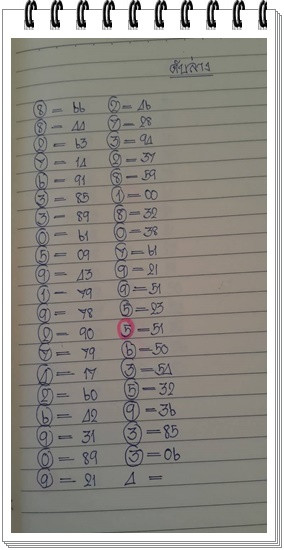 ตัวล่าง
8 = 66 2 = 46
8 = 44 7 = 28
2 = 63 3 = 94
7 = 14 2 = 37
6 = 91 8 = 59
3 = 85 1 = 00
3 = 89 8 = 32
0 = 61 0 = 38
5 = 09 7 = 61
9 = 43 9 = 21
1 = 79 9 = 51
9 = 78 5 = 23
2 = 90 5 = 51
7 = 79 6 = 50
1 = 17 3 = 54
2 = 60 5 = 32
6 = 42 9 = 36
9 = 31 3 = 85
0 = 89 3 = 06
9 = 21 4 =